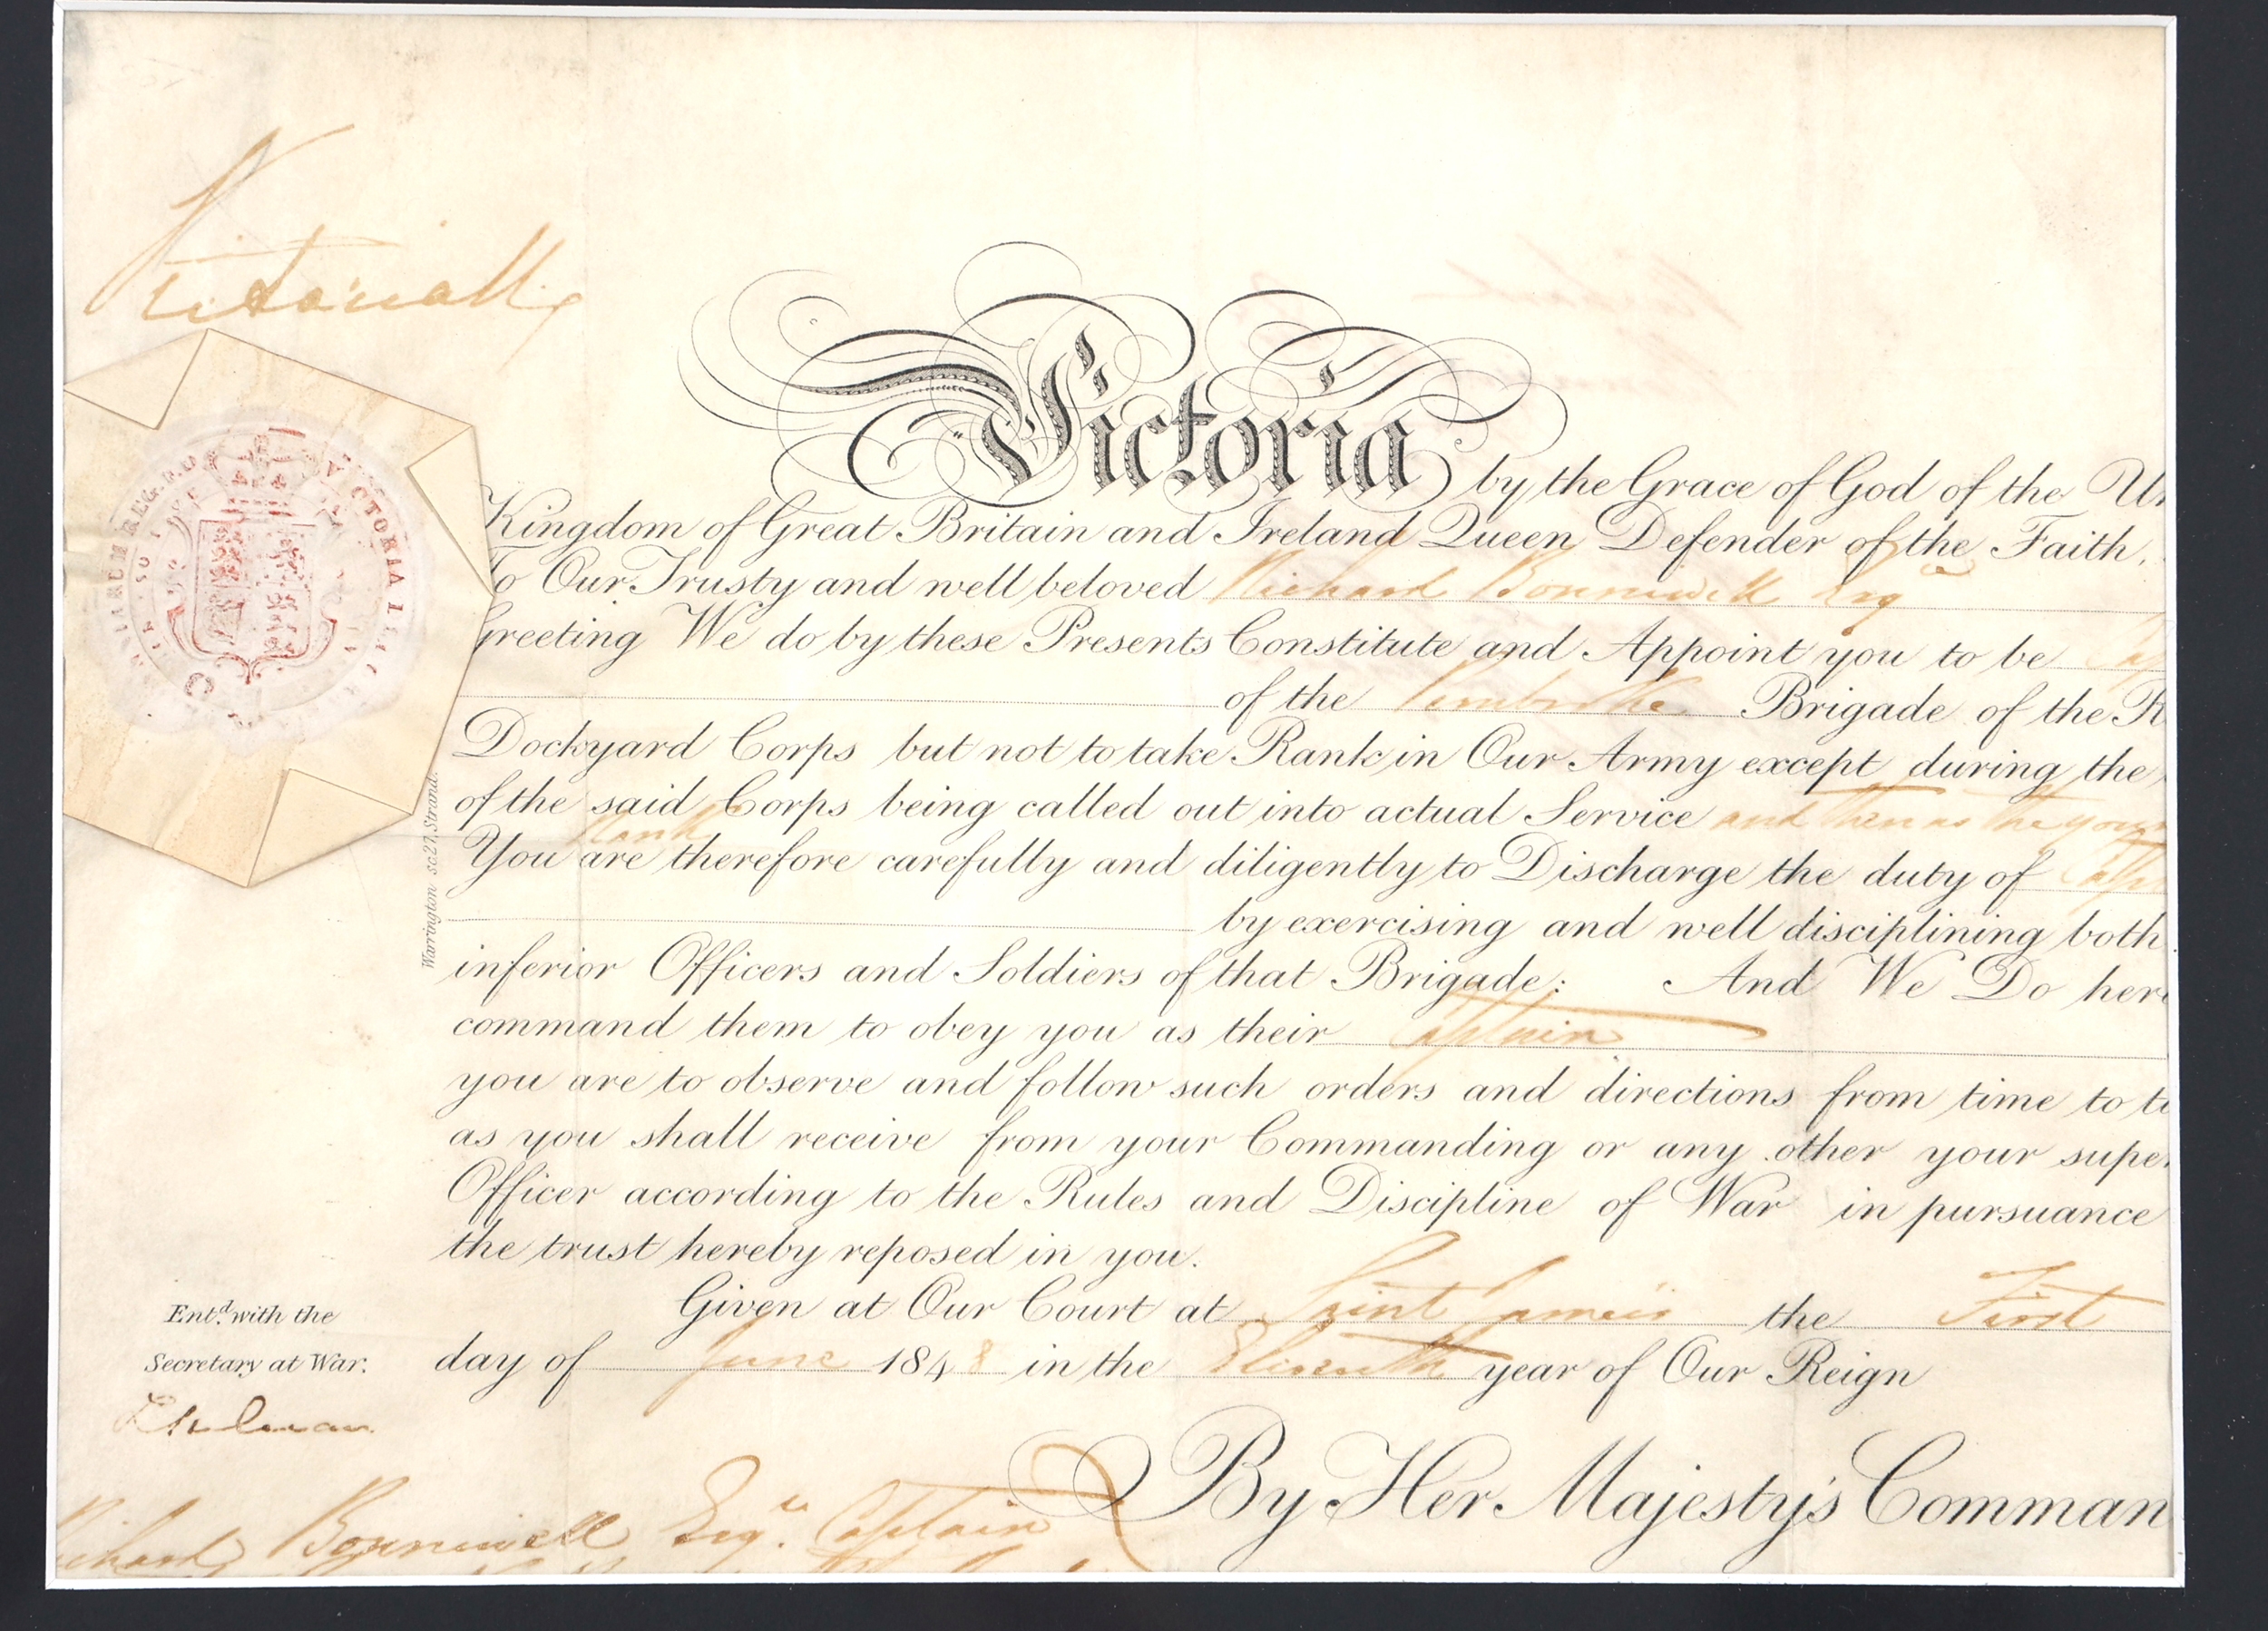 Victoria R
Victoria by the Grace of God of the
Kingdom of Great Britain and Ireland Queen Defender of the Faith,
To Our Trusty and well beloved Richard Bonniwell Esq
Greeting We do by these Presents Constitute and Appoint you to be
of the Pembroke Brigade of the
Dockyard Corps but not to take Rank in Our Army except during the
of the said Corps being called out into actual Service and then as the
Rank
You are therefore carefully and diligently to Discharge the duty of
by exercising and well disciplining both
inferior Officers and Soldiers of that Brigade: And We Do
command them to obey you as their Captain
you are to observe and follow such orders and directions from time to
as you shall receive from your Commanding or any other your
Officer according to the Rules and Discipline of War in pursuance
the trust hereby reposed in you.
Given at Our Court at Saint James's the First
day of June 1848 in the Eleventh year of Our Reign
By Her Majesty's Comman
Warrington sc 27, Strand.
VICTORIA
Entd. with the
Secretary at War.
Richard Bonniwell Esqr. Captain